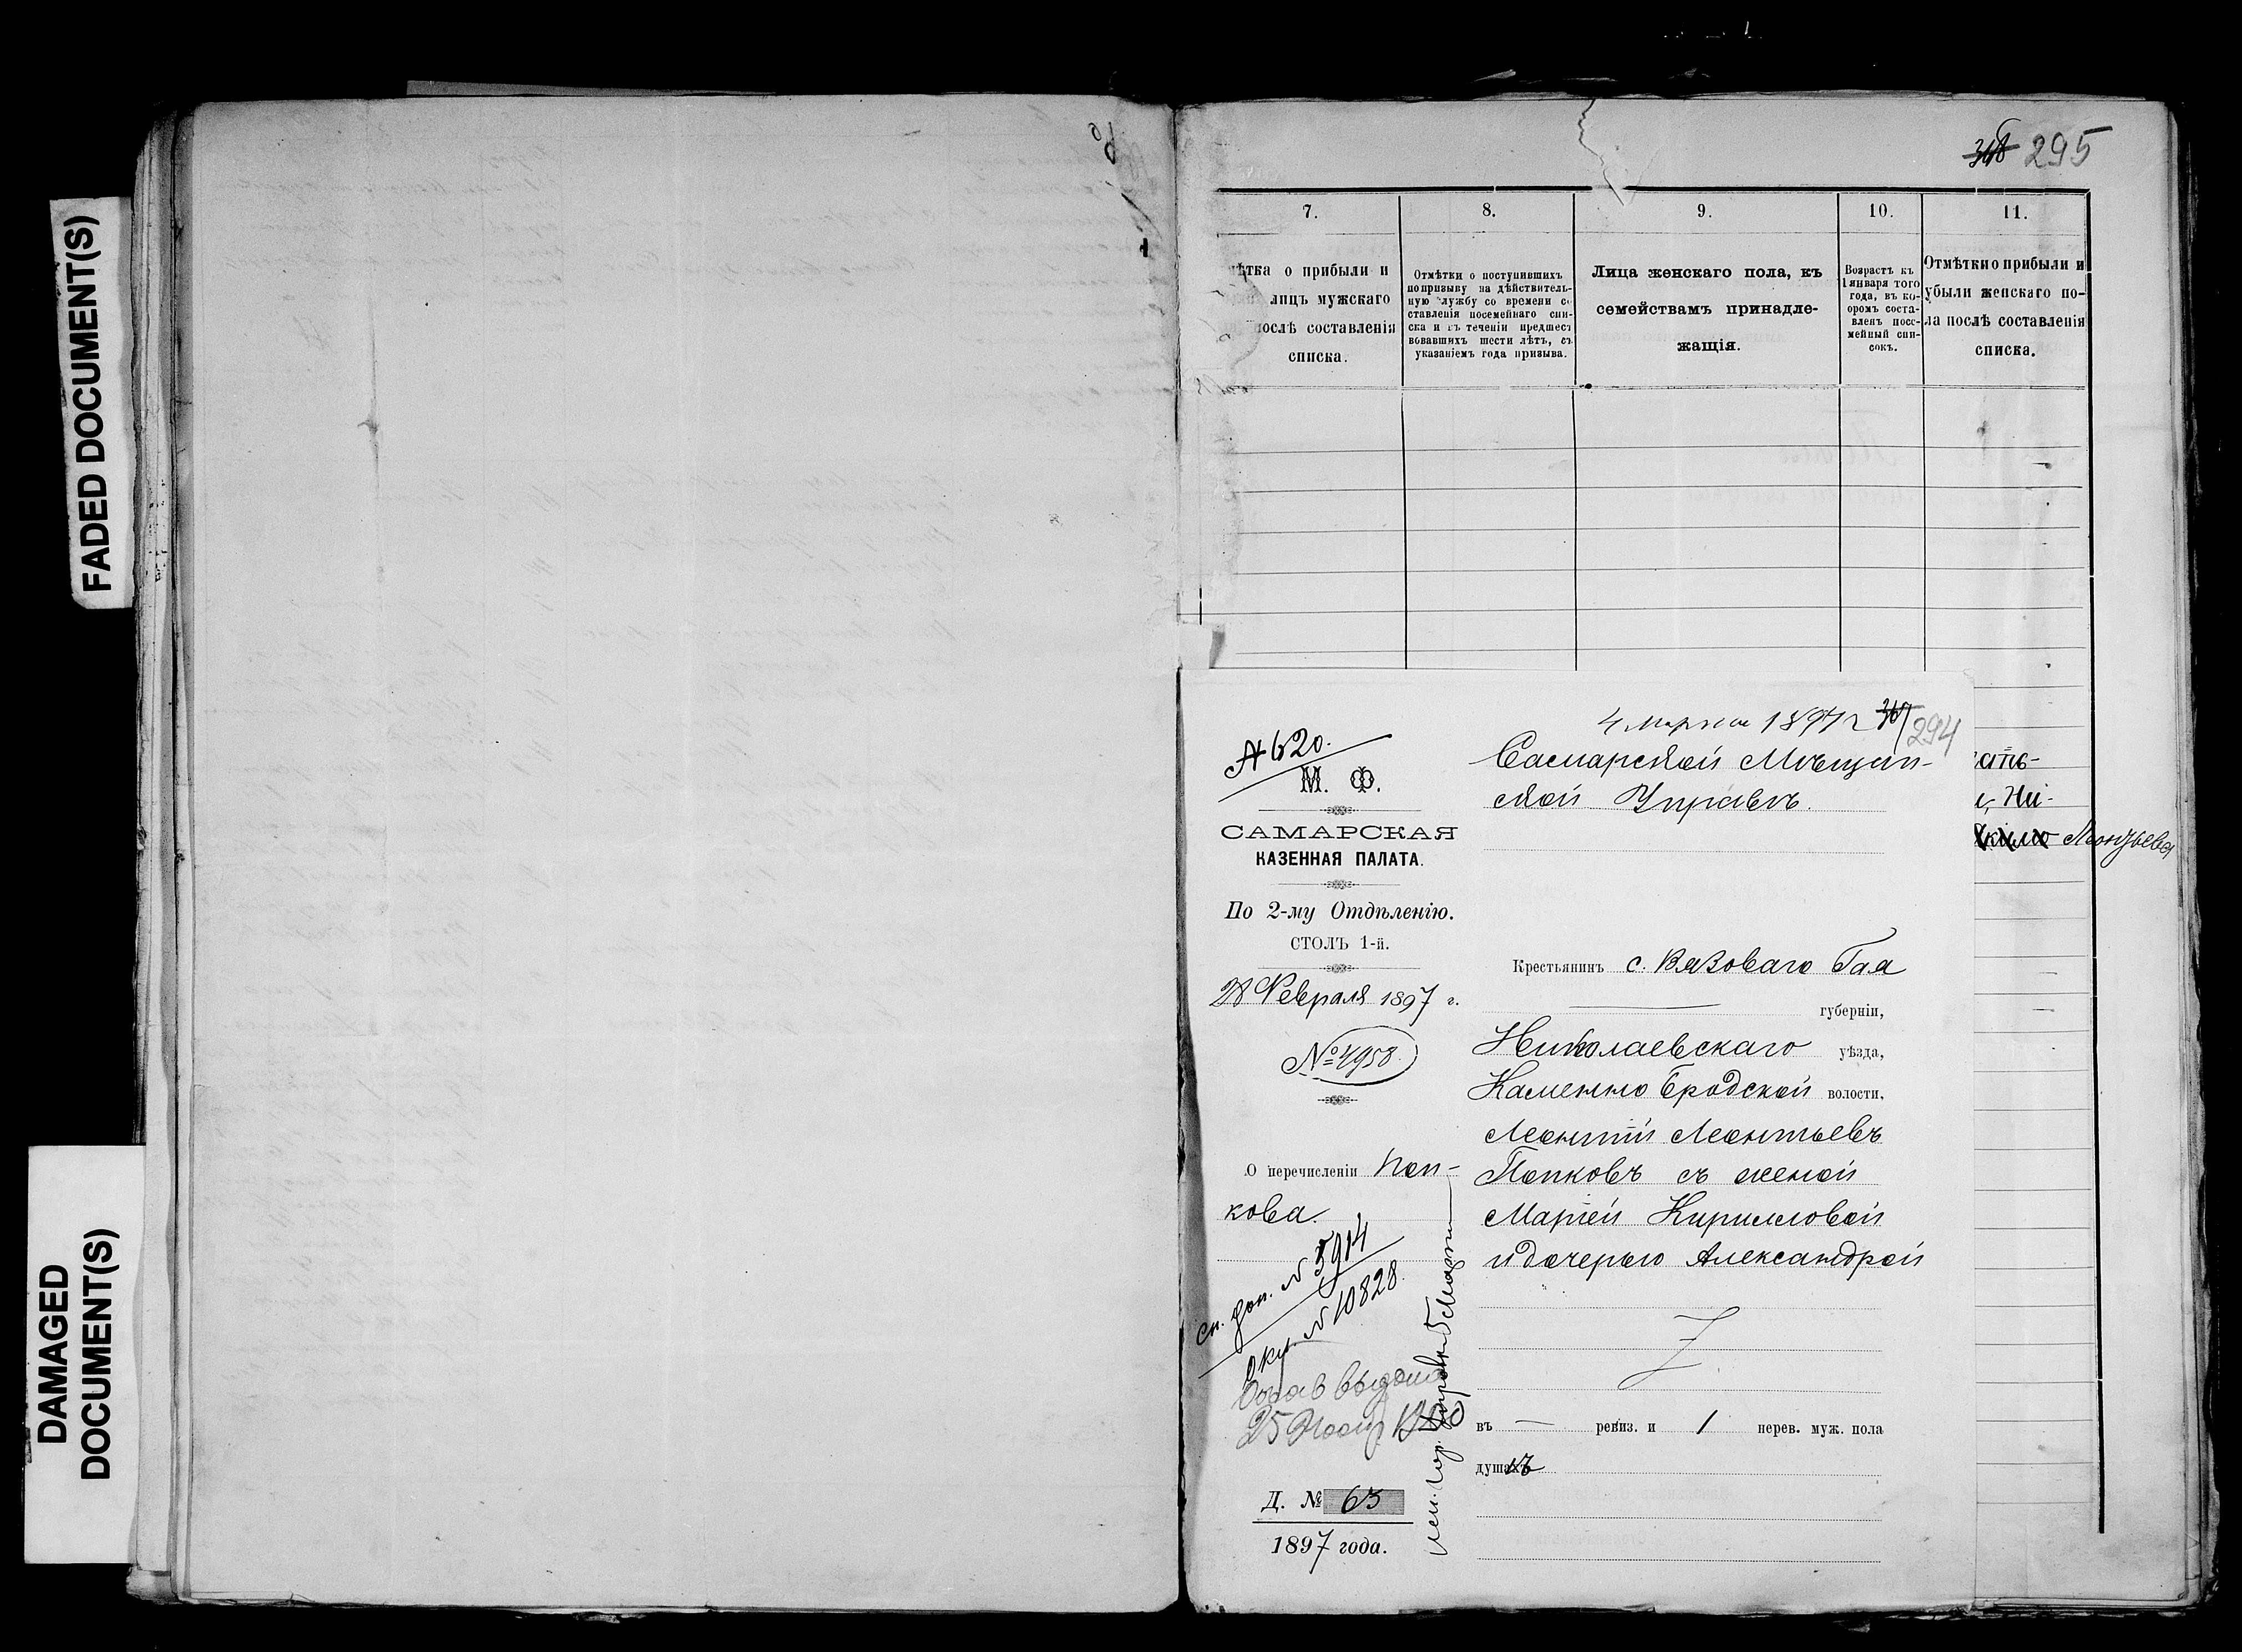 FADED DOCUMENT(S)
DAMAGED
DOCUMENT(S)
295
7.
8.
9.
10.
11.
ѣтка о прибыли и
лицъ мужскаго
послѣ составленія
списка.
Отмѣтки о поступившихъ
по призыву на дѣйствитель-
ную службу со времени со
ставленія посемейнаго спи-
ска и въ теченіи предшест
вовавшихъ шести лѣтъ, съ
указаніемъ года призыва.
Лица женскаго пола, къ
семействамъ принадле-
жащія.
Возрастъ къ
1 января того
года, въ ко-
оромъ соста-
вленъ посе-
мейный спи-
сокъ.
Отмѣтки о прибыли и
убыли женскаго по-
ла послѣ составленія
списка.
4 марта 1897 г
294
№ 620.
М. Ф.
САМАРСКАЯ
КАЗЕННАЯ ПАЛАТА.
По 2-му Отдѣленію.
СТОЛЪ 1-й.
28 Февраля 1897 г.
№ 4958
О перечисленіи Поп-
кова.
№ 5914
№ 10828
Д. № 63
1897 года.
Самарской Мѣщан-
ской Управѣ.
Крестьянинъ с. Вязоваго Гая
губерніи,
Николаевскаго уѣзда,
Каменно Бродской волости,
Леонтій Леонтьевъ
Попковъ съ женой
Маріей Кирилловой
и дочерью Александрой
въ — ревиз. и 1 перев. муж. пола
душахъ
Леонтьева